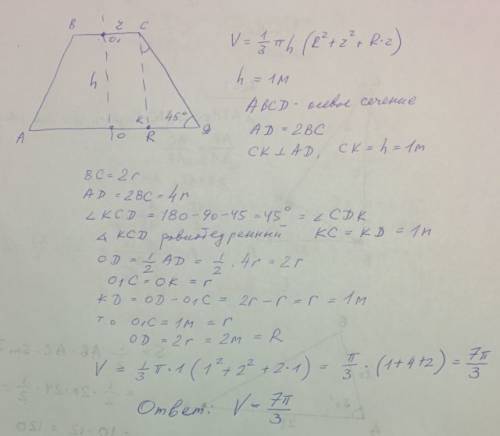 B r C
O₁
V = 1/3 πh (R² + r² + R·r)
h
h = 1м
ABCD - осевое сечение
K 45°
A O R D
AD = 2BC
CK ⊥ AD, CK = h = 1м
BC = 2r
AD = 2BC = 4r
∠KCD = 180 - 90 - 45 = 45° = ∠CDK
△ KCD равнобедренный KC = KD = 1м
OD = 1/2 AD = 1/2 · 4r = 2r
O₁C = OK = r
KD = OD - O₁C = 2r - r = r = 1м
т.о O₁C = 1м = r
OD = 2r = 2м = R
V = 1/3 π · 1 (1² + 2² + 2·1) = π/3 · (1+4+2) = 7π/3
Ответ: V = 7π/3